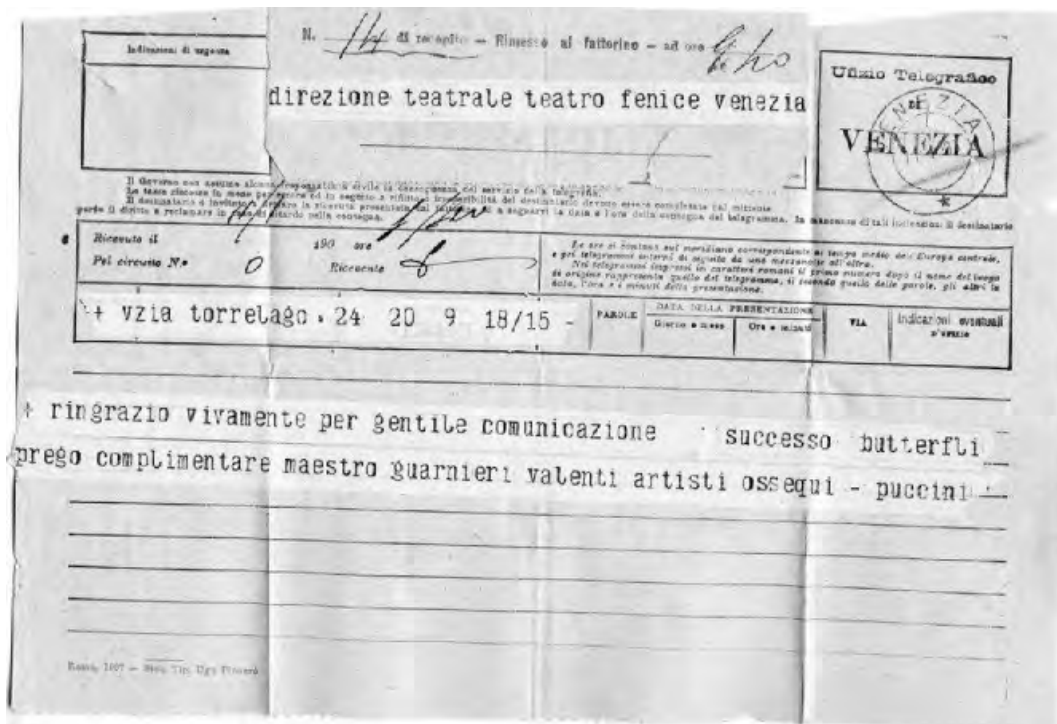 Indicazioni di urgenza
N. 14 di recapito — Rimesso al fattorino — ad ore
direzione teatrale teatro fenice venezia
Ufizio Telegrafico
di
VENEZIA
VENEZIA
Il Governo non assume alcuna responsabilità civile in conseguenza del servizio della telegrafia.
Le tasse riscosse in meno per errore ed in seguito a rifiuto o irreperibilità del destinatario devono essere completate dal mittente
Il destinatario è invitato a firmare la ricevuta presentata dal fattorino ed a segnarvi la data e l'ora della consegna del telegramma. In mancanza di tali indicazioni il destinatario
perde il diritto a reclamare in caso di ritardo nella consegna.
Ricevuto il 190 ore
Pel circuito N.º 0 Ricevente
Le ore si contano sul meridiano corrispondente al tempo medio dell'Europa centrale,
e pei telegrammi interni di seguito da una mezzanotte all'altra.
Nei telegrammi impressi in caratteri romani il primo numero dopo il nome del luogo
di origine rappresenta quello del telegramma, il secondo quello delle parole, gli altri la
data, l'ora e i minuti della presentazione.
+ vzia torrelago . 24 20 9 18/15 -
PAROLE
DATA DELLA PRESENTAZIONE
Giorno e mese
Ore e minuti
VIA
Indicazioni eventuali
d'ufficio
+ ringrazio vivamente per gentile comunicazione successo butterfli
prego complimentare maestro guarnieri valenti artisti ossequi - puccini
Roma, 1907 — Tip. Ugo Pinnarò